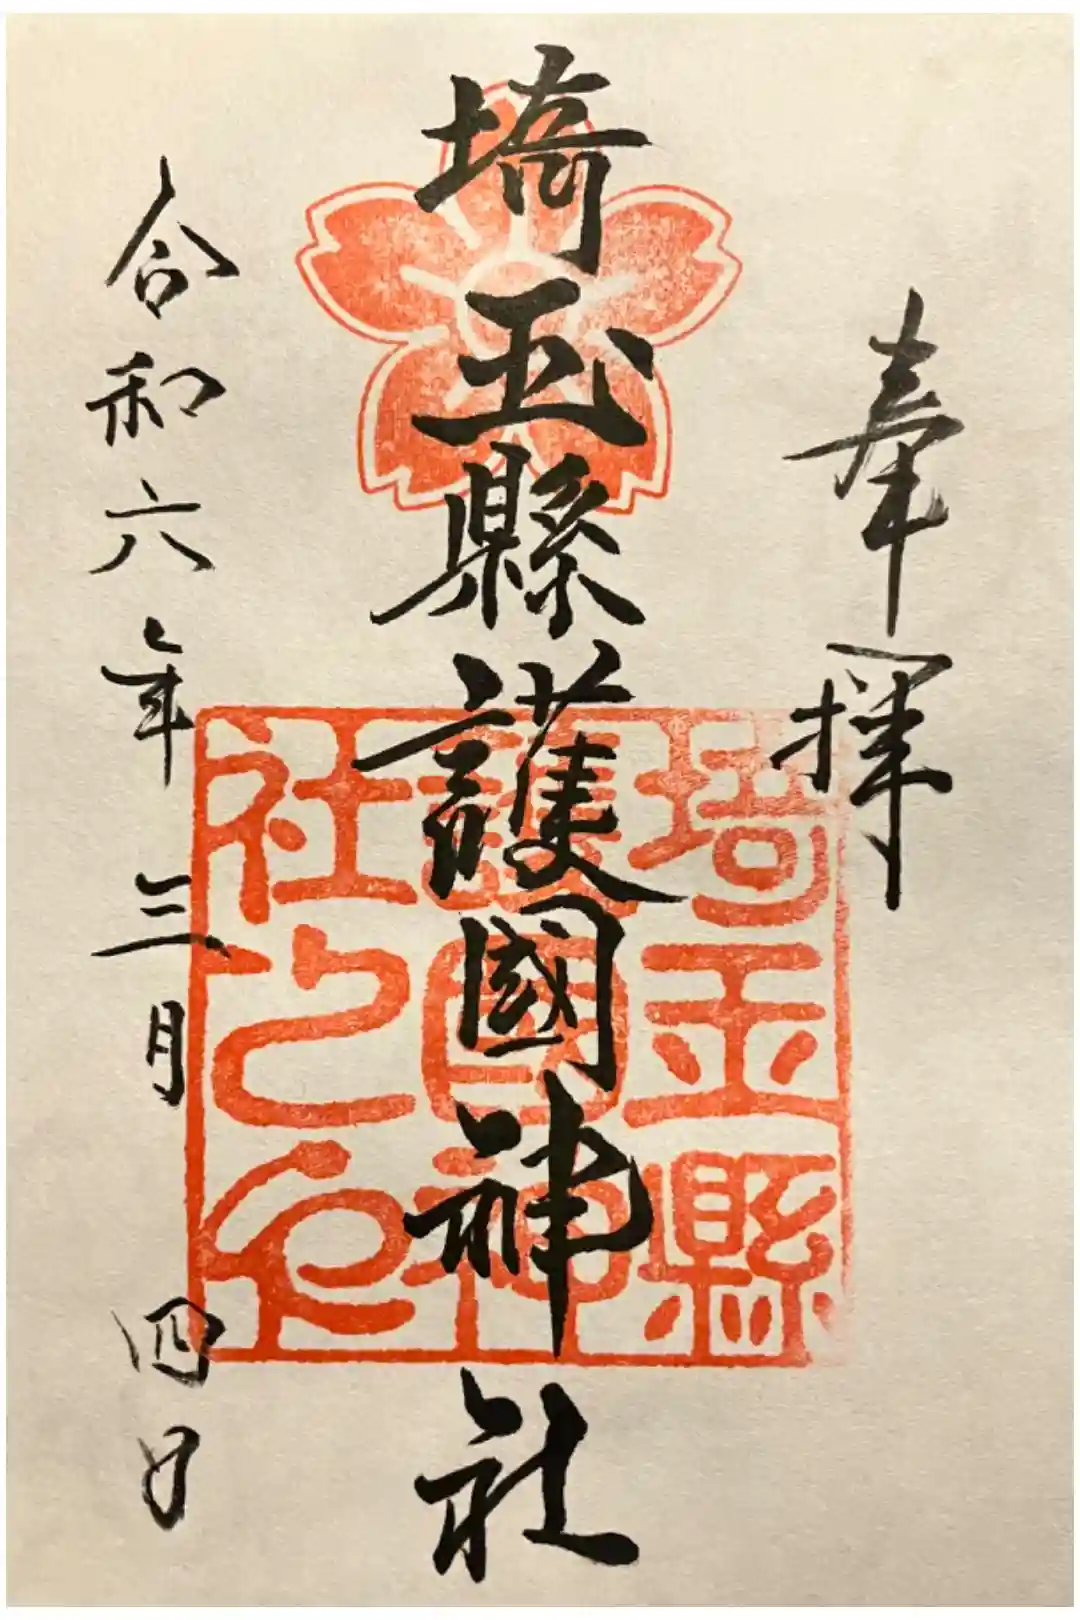 奉拝
埼玉縣護國神社
埼玉縣
護国神
社之印
令和六年三月四日